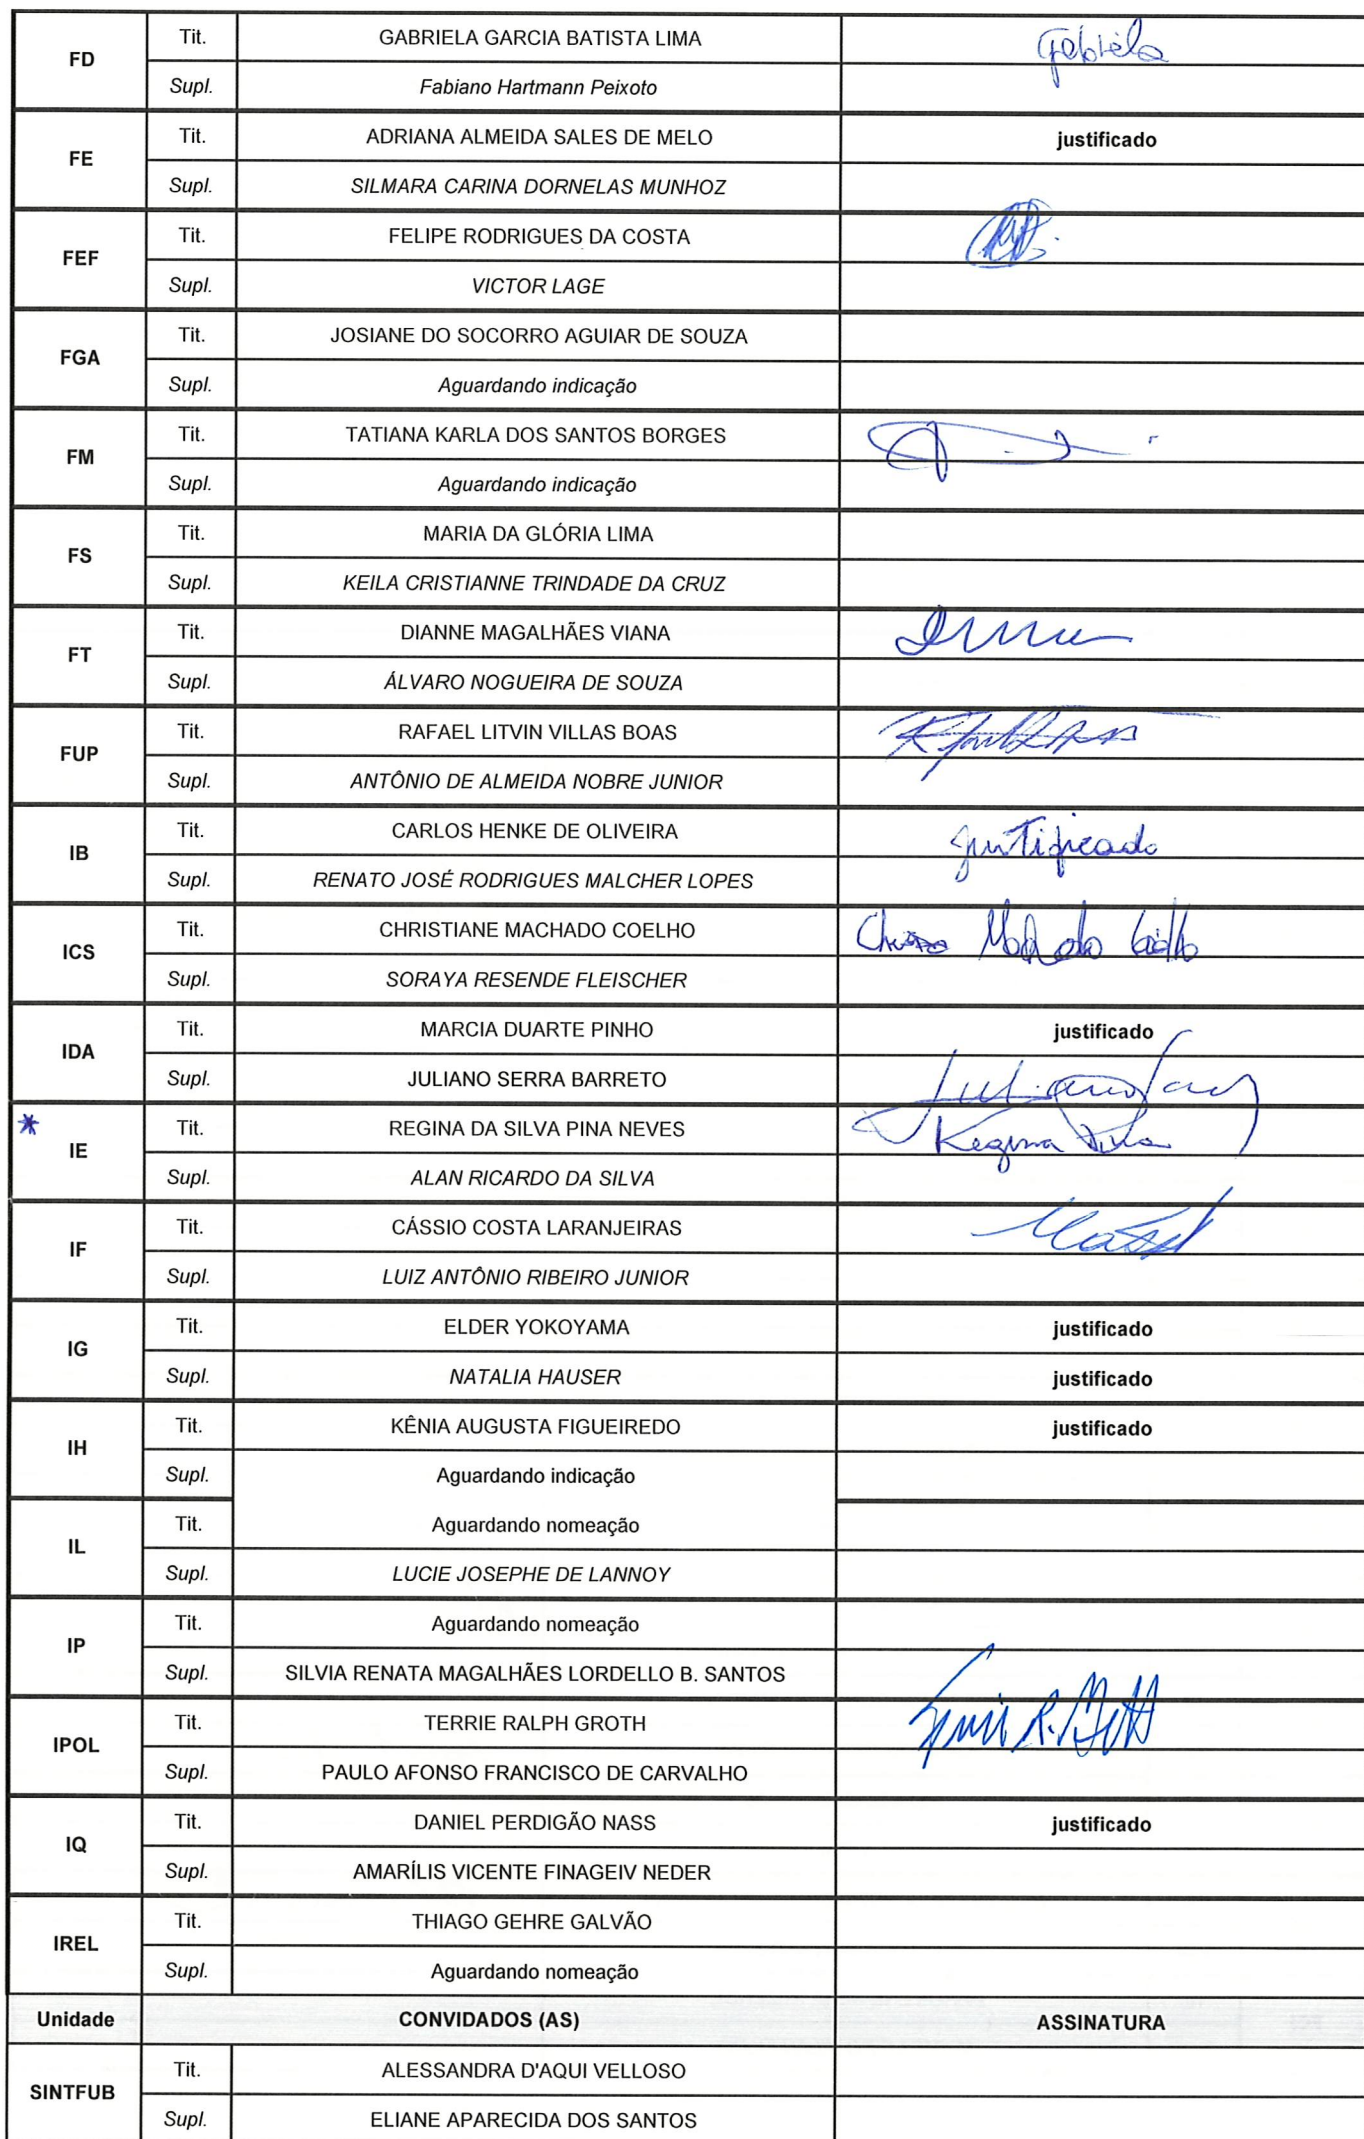 FD Tit. GABRIELA GARCIA BATISTA LIMA Gabriela
Supl. Fabiano Hartmann Peixoto
FE Tit. ADRIANA ALMEIDA SALES DE MELO justificado
Supl. SILMARA CARINA DORNELAS MUNHOZ
FEF Tit. FELIPE RODRIGUES DA COSTA
Supl. VICTOR LAGE
FGA Tit. JOSIANE DO SOCORRO AGUIAR DE SOUZA
Supl. Aguardando indicação
FM Tit. TATIANA KARLA DOS SANTOS BORGES
Supl. Aguardando indicação
FS Tit. MARIA DA GLÓRIA LIMA
Supl. KEILA CRISTIANNE TRINDADE DA CRUZ
FT Tit. DIANNE MAGALHÃES VIANA
Supl. ÁLVARO NOGUEIRA DE SOUZA
FUP Tit. RAFAEL LITVIN VILLAS BOAS
Supl. ANTÔNIO DE ALMEIDA NOBRE JUNIOR
IB Tit. CARLOS HENKE DE OLIVEIRA justificado
Supl. RENATO JOSÉ RODRIGUES MALCHER LOPES
ICS Tit. CHRISTIANE MACHADO COELHO Machado Coelho
Supl. SORAYA RESENDE FLEISCHER
IDA Tit. MARCIA DUARTE PINHO justificado
Supl. JULIANO SERRA BARRETO Juliano
* IE Tit. REGINA DA SILVA PINA NEVES Regina Pina
Supl. ALAN RICARDO DA SILVA
IF Tit. CÁSSIO COSTA LARANJEIRAS
Supl. LUIZ ANTÔNIO RIBEIRO JUNIOR
IG Tit. ELDER YOKOYAMA justificado
Supl. NATALIA HAUSER justificado
IH Tit. KÊNIA AUGUSTA FIGUEIREDO justificado
Supl. Aguardando indicação
IL Tit. Aguardando nomeação
Supl. LUCIE JOSEPHE DE LANNOY
IP Tit. Aguardando nomeação
Supl. SILVIA RENATA MAGALHÃES LORDELLO B. SANTOS
IPOL Tit. TERRIE RALPH GROTH
Supl. PAULO AFONSO FRANCISCO DE CARVALHO
IQ Tit. DANIEL PERDIGÃO NASS justificado
Supl. AMARÍLIS VICENTE FINAGEIV NEDER
IREL Tit. THIAGO GEHRE GALVÃO
Supl. Aguardando nomeação
Unidade CONVIDADOS (AS) ASSINATURA
SINTFUB Tit. ALESSANDRA D'AQUI VELLOSO
Supl. ELIANE APARECIDA DOS SANTOS